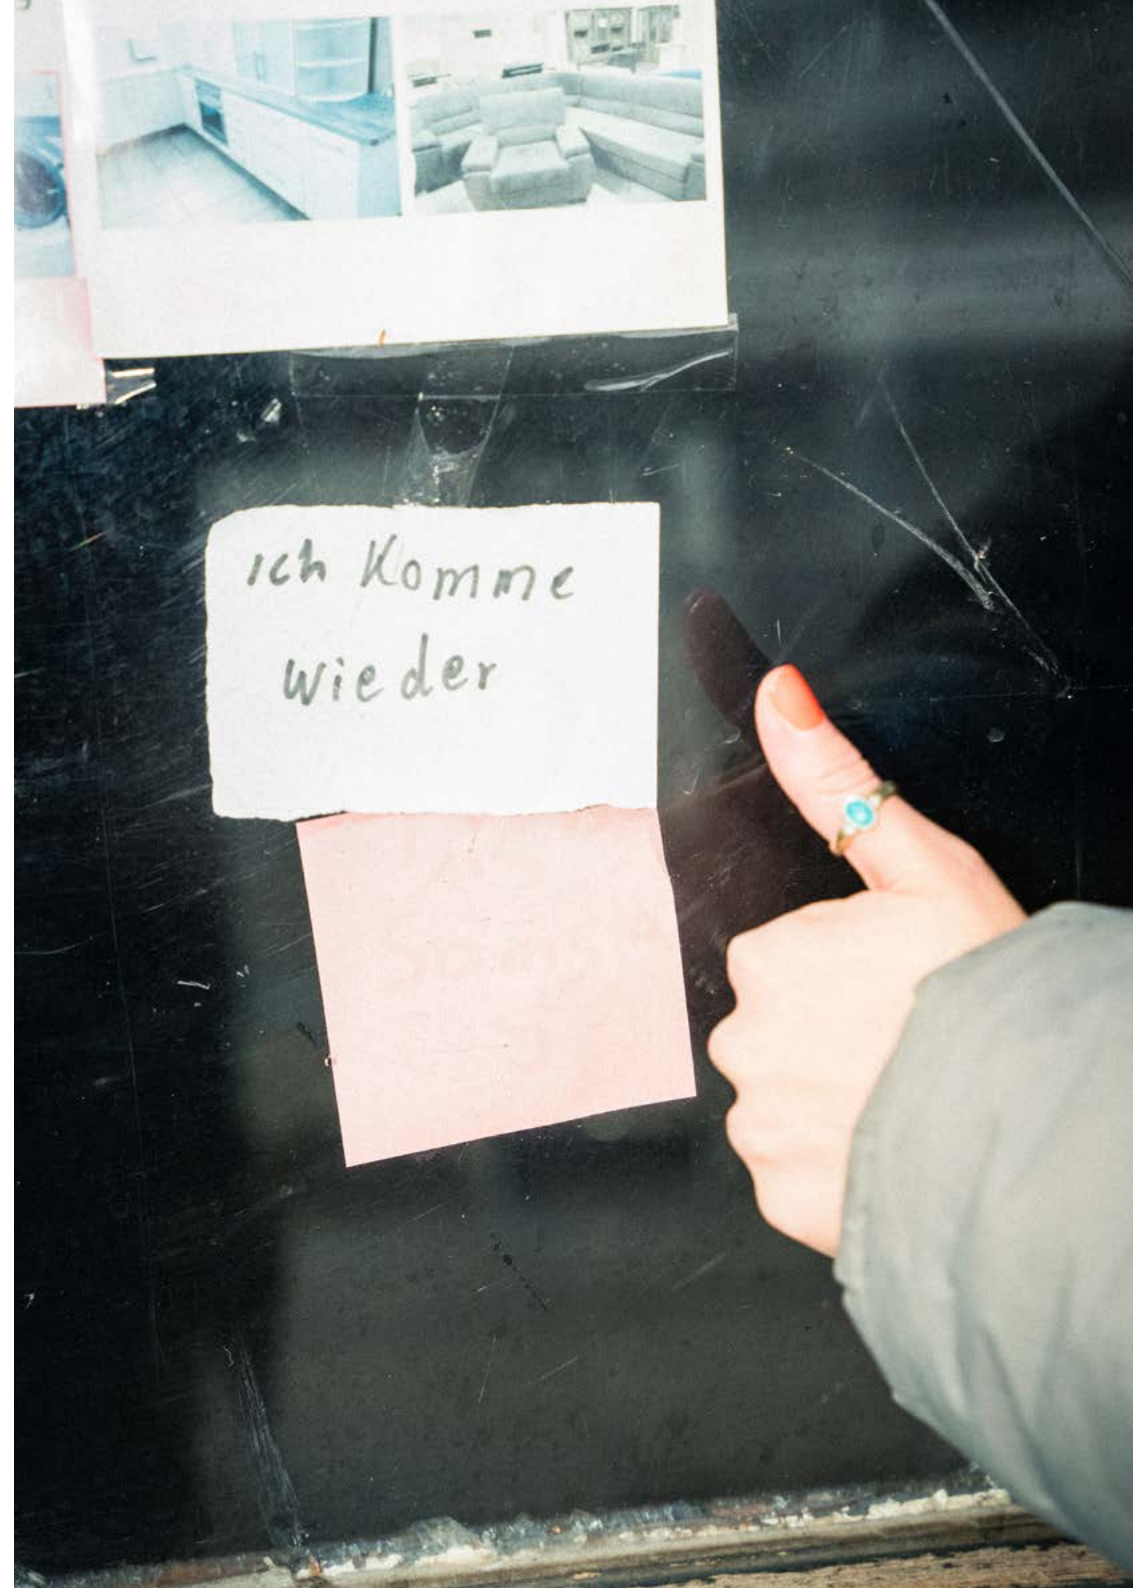 ich Komme
wieder